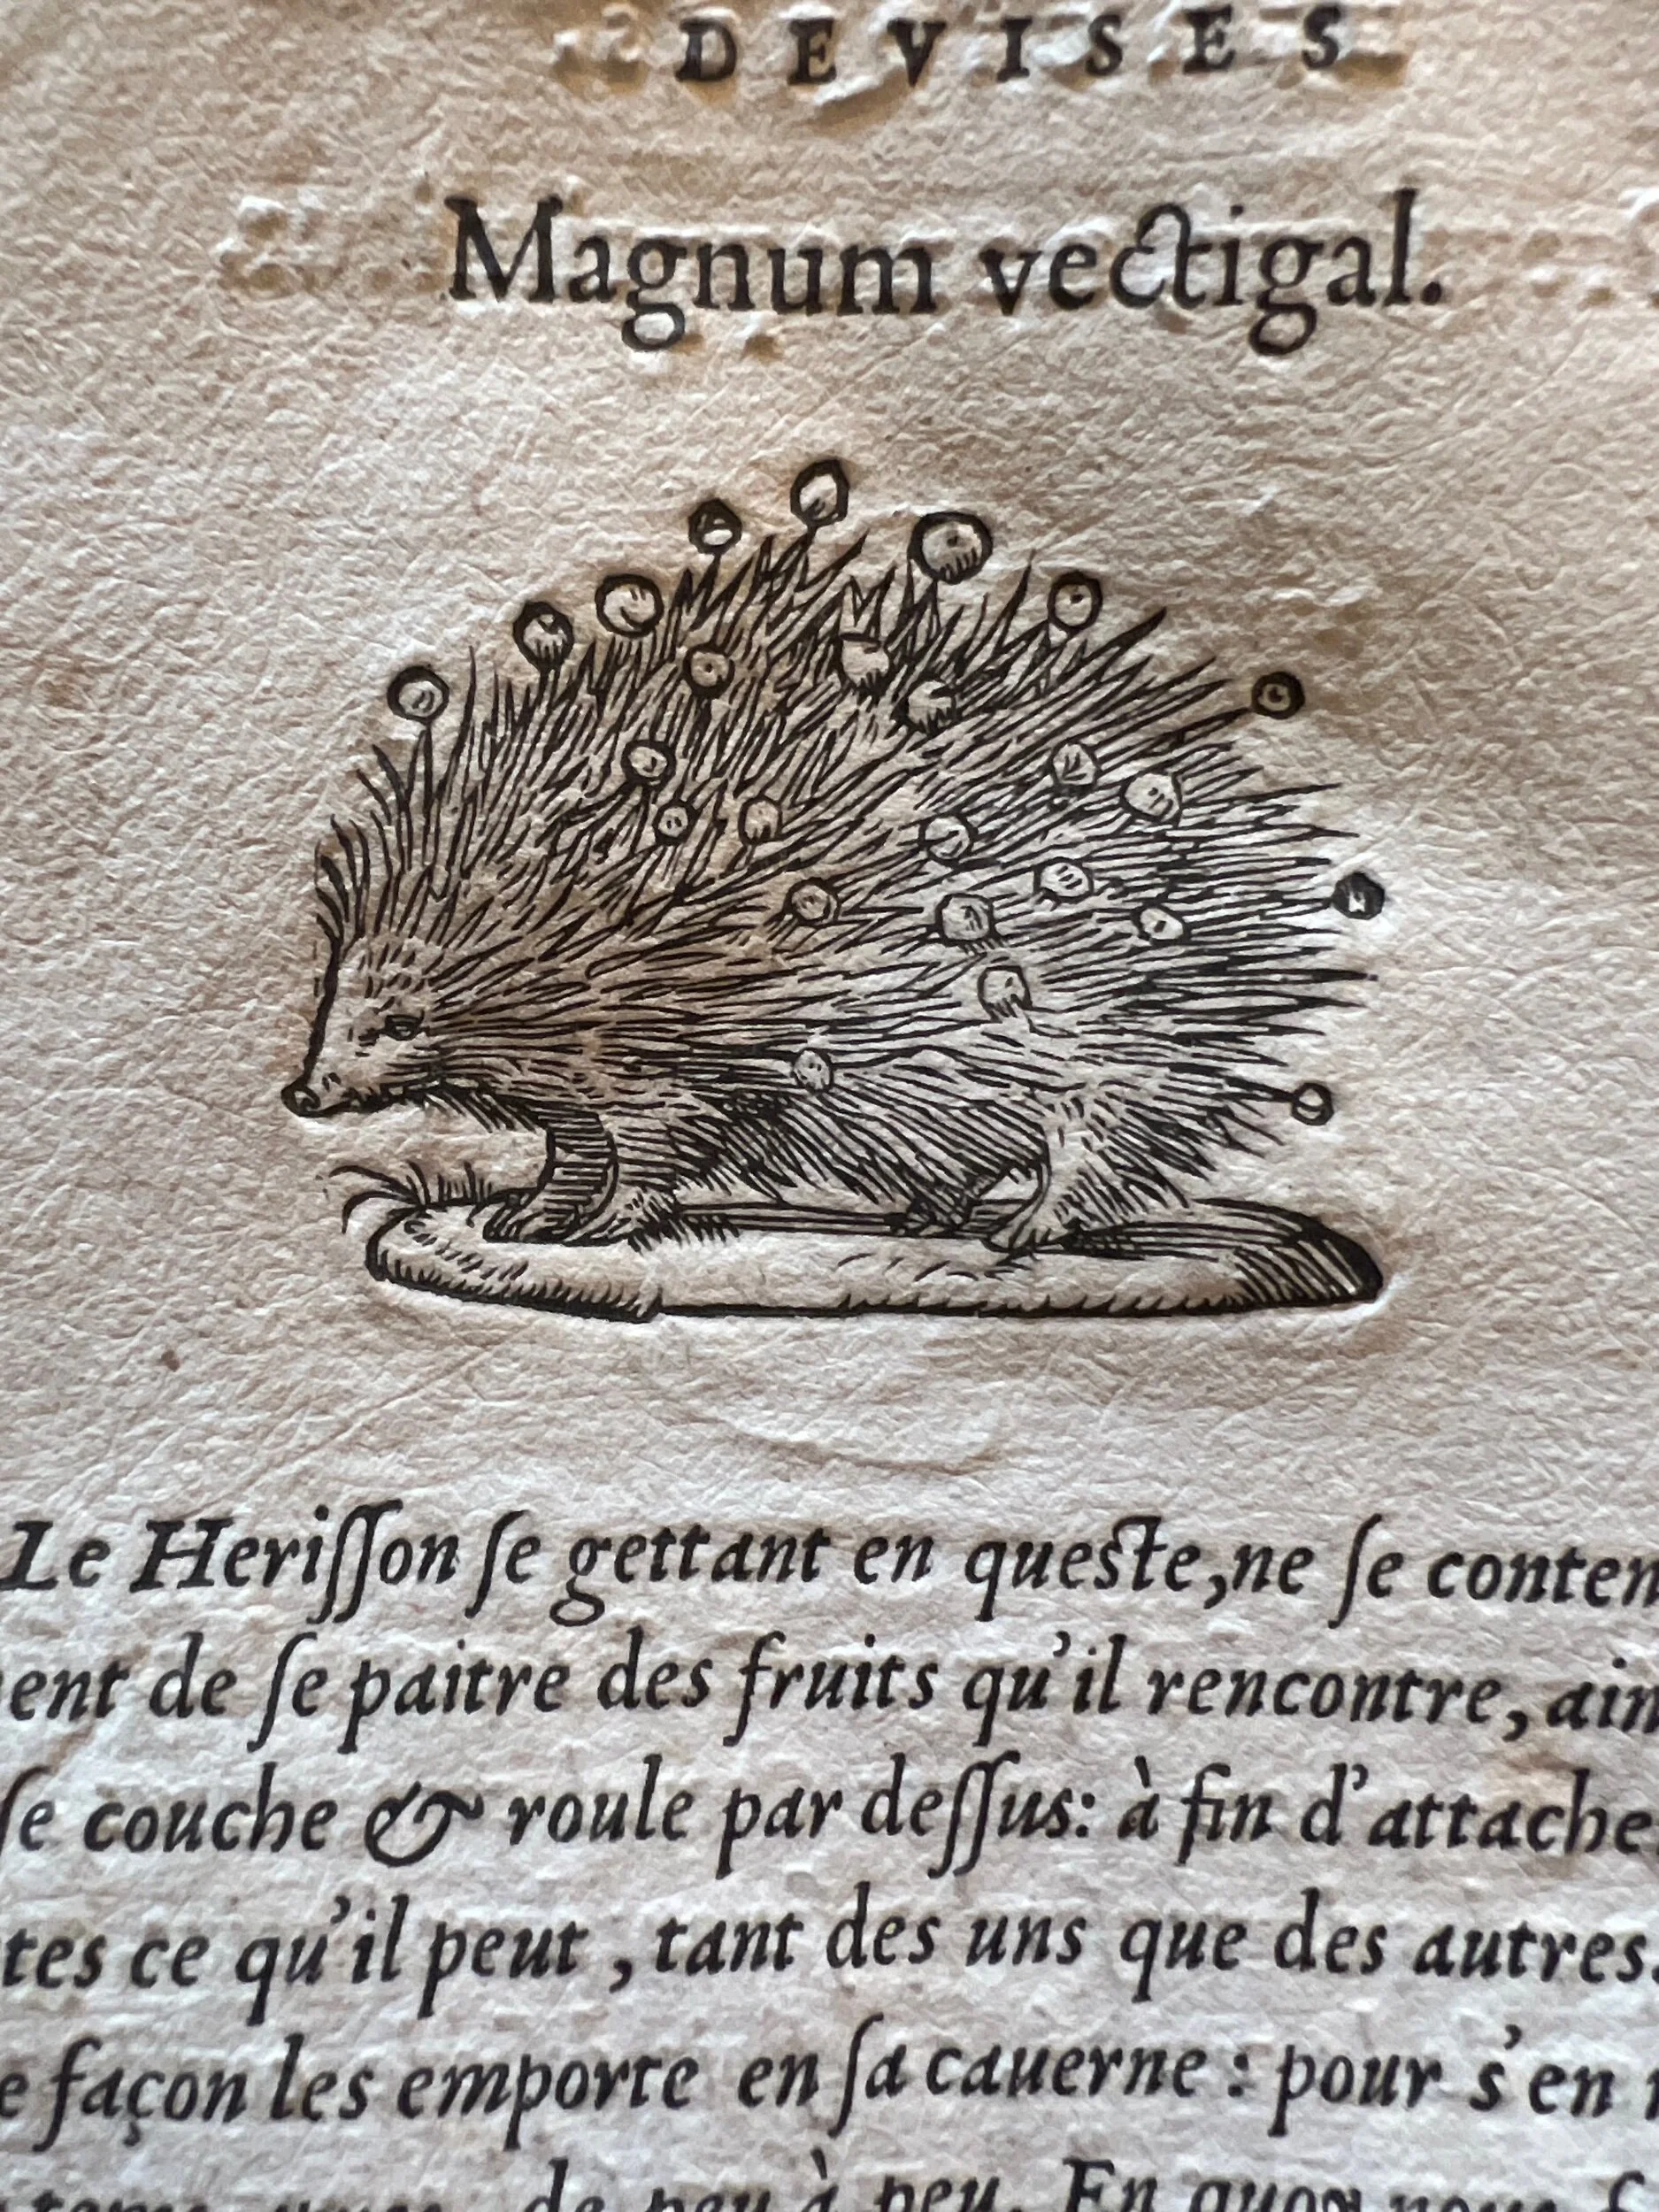 DEVISES
Magnum vectigal.
Le Heriſſon ſe gettant en queste, ne ſe conten
ent de ſe paitre des fruits qu'il rencontre, ain
ſe couche & roule par deſſus: à fin d'attache
tes ce qu'il peut, tant des uns que des autres.
façon les emporte en ſa cauerne: pour s'en
de peu à peu. En quoy nous